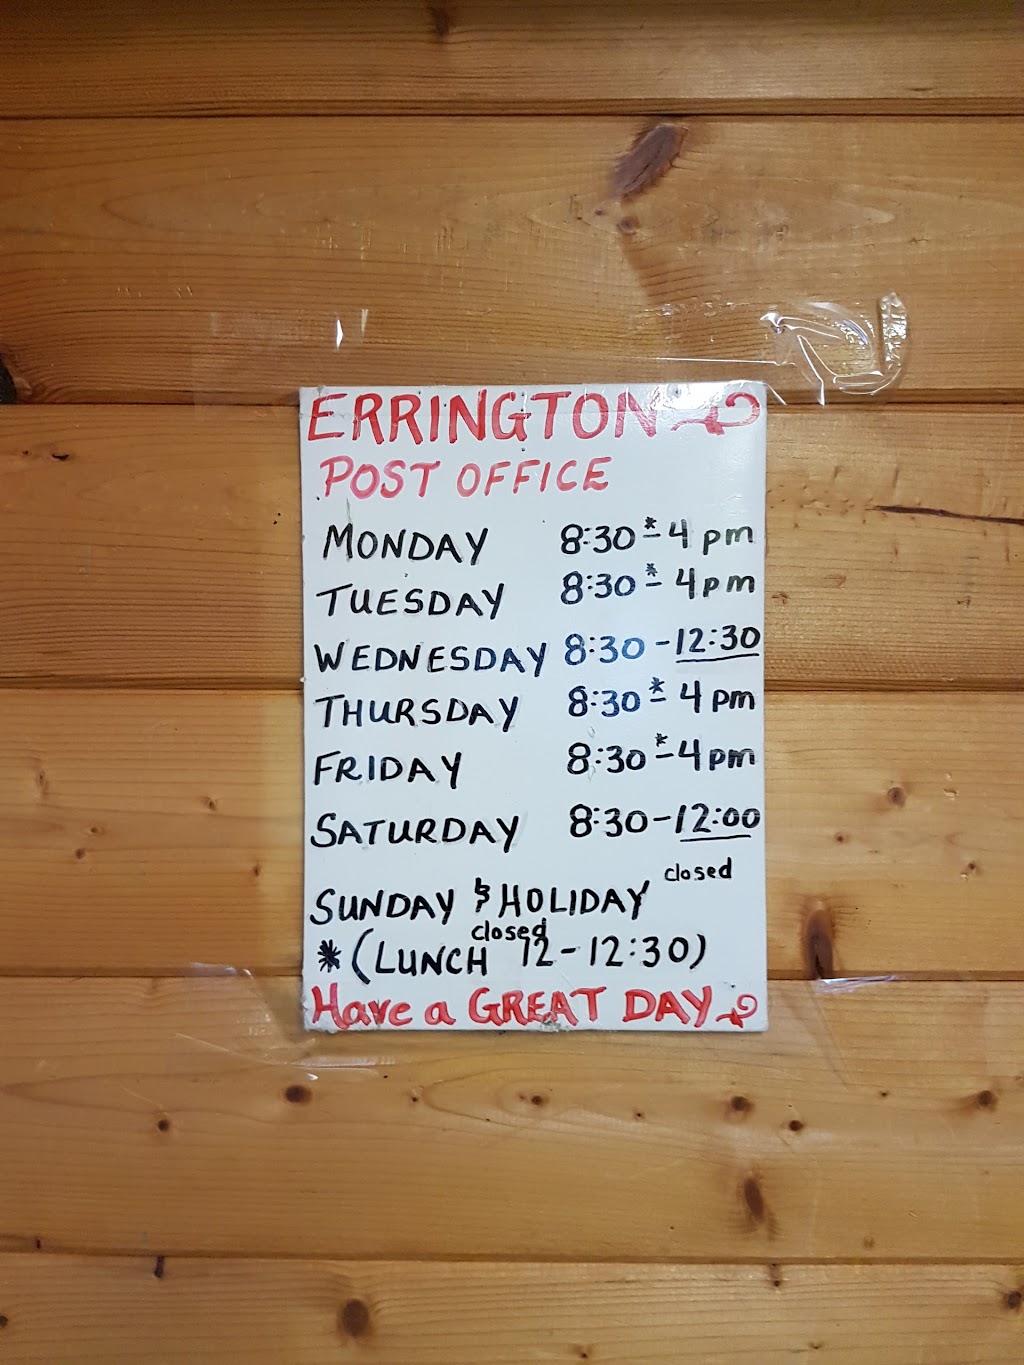 ERRINGTON
POST OFFICE
MONDAY 8:30 *- 4 pm
TUESDAY 8:30 *- 4 pm
WEDNESDAY 8:30 - 12:30
THURSDAY 8:30 *- 4 pm
FRIDAY 8:30 *- 4 pm
SATURDAY 8:30 - 12:00
SUNDAY & HOLIDAY closed
*(LUNCH closed 12 - 12:30)
Have a GREAT DAY